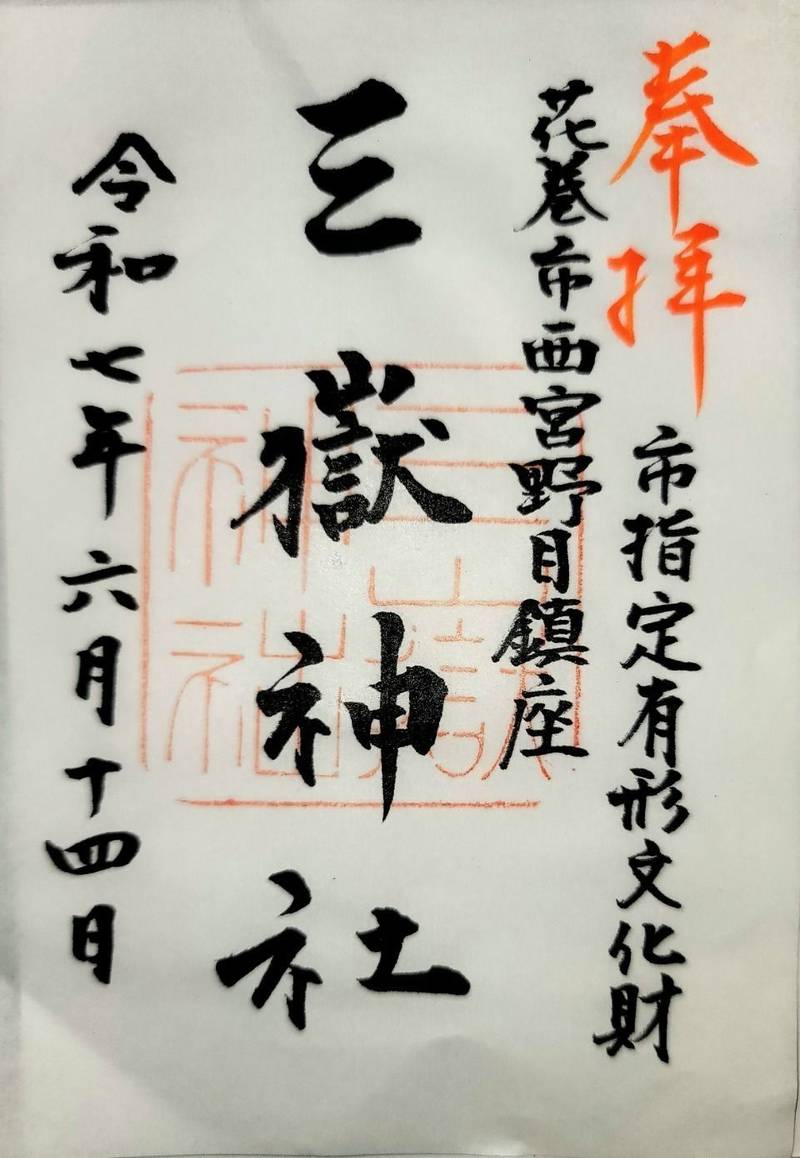 奉拝
市指定有形文化財
花巻市西宮野目鎮座
三嶽神社
三嶽神社
令和七年六月十四日